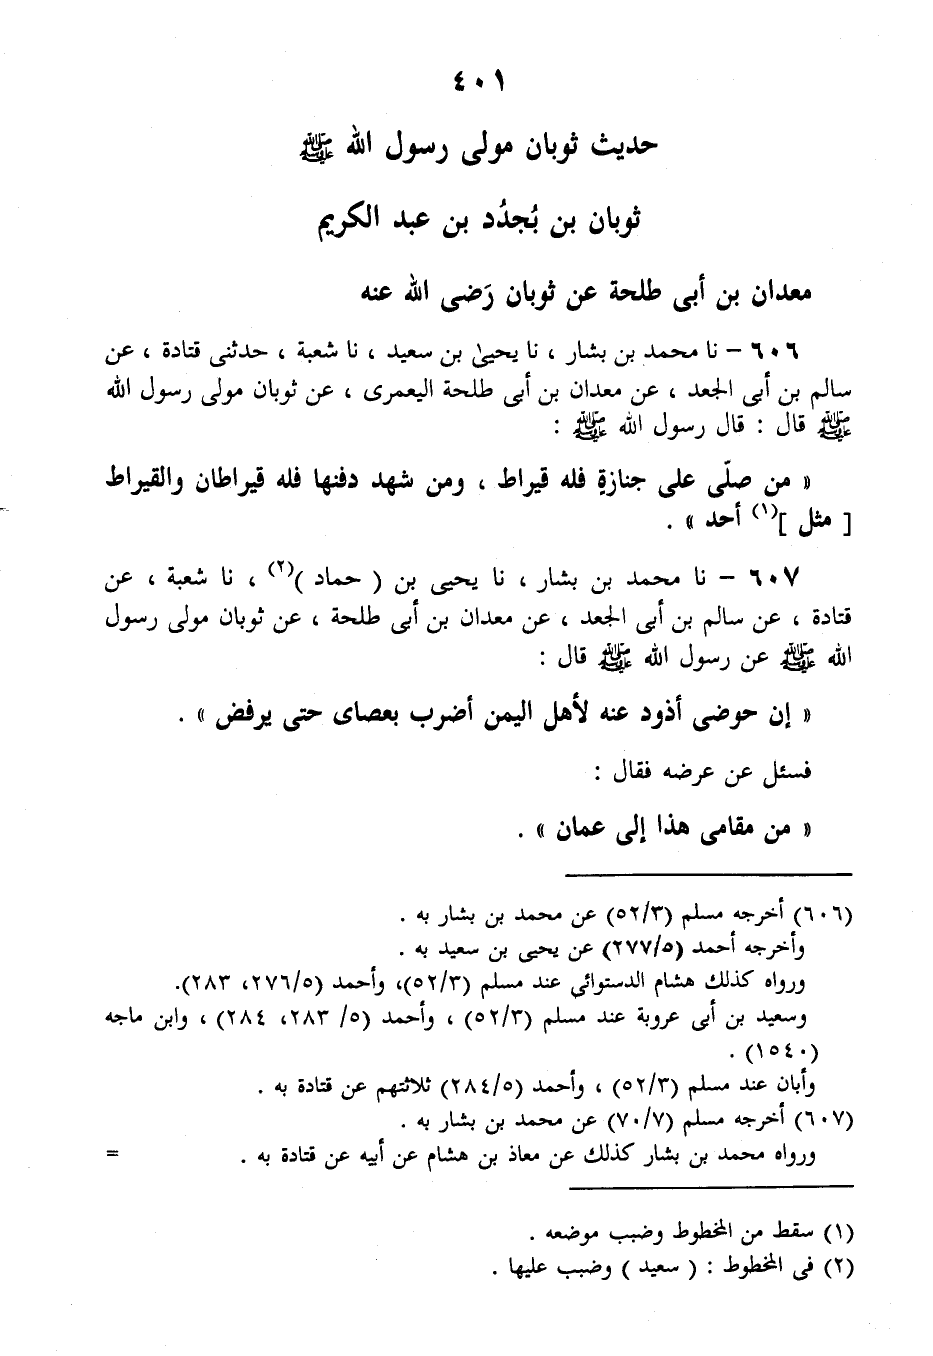 ٤٠١
حديث ثوبان مولى رسول الله ﷺ
ثوبان بن بُجدُد بن عبد الكريم
معدان بن أبى طلحة عن ثوبان رَضى الله عنه
٦٠٦ – نا محمد بن بشار ، نا يحيىٰ بن سعيد ، نا شعبة ، حدثنى قتادة ، عن
سالم بن أبى الجعد ، عن معدان بن أبى طلحة اليعمرى ، عن ثوبان مولى رسول الله
ﷺ قال : قال رسول الله ﷺ :
« من صلّى على جنازةٍ فله قيراط ، ومن شهد دفنها فله قيراطان والقيراط
[ مثل ](١) أحد » .
٦٠٧ – نا محمد بن بشار ، نا يحيى بن ( حماد )(٢) ، نا شعبة ، عن
قتادة ، عن سالم بن أبى الجعد ، عن معدان بن أبى طلحة ، عن ثوبان مولى رسول
الله ﷺ عن رسول الله ﷺ قال :
« إن حوضى أذود عنه لأهل اليمن أضرب بعصاى حتى يرفض » .
فسئل عن عرضه فقال :
« من مقامى هذا إلى عمان » .
(٦٠٦) أخرجه مسلم (٥٢/٣) عن محمد بن بشار به .
وأخرجه أحمد (٢٧٧/٥) عن يحيى بن سعيد به .
ورواه كذلك هشام الدستوائي عند مسلم (٥٢/٣)، وأحمد (٢٧٦/٥، ٢٨٣).
وسعيد بن أبى عروبة عند مسلم (٥٢/٣) ، وأحمد (٥/ ٢٨٣، ٢٨٤) ، وابن ماجه
(١٥٤٠) .
وأبان عند مسلم (٥٢/٣) ، وأحمد (٢٨٤/٥) ثلاثتهم عن قتادة به .
(٦٠٧) أخرجه مسلم (٧٠/٧) عن محمد بن بشار به .
ورواه محمد بن بشار كذلك عن معاذ بن هشام عن أبيه عن قتادة به . =
(١) سقط من المخطوط وضبب موضعه .
(٢) فى المخطوط : ( سعيد ) وضبب عليها .